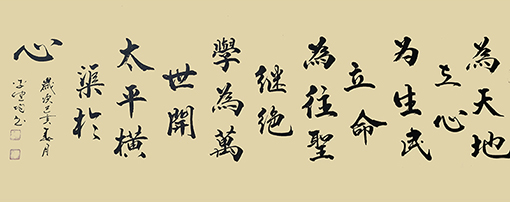 為天地
立心
为生民
立命
為往聖
继绝
學為萬
世開
太平橫
渠於
心
歲次月